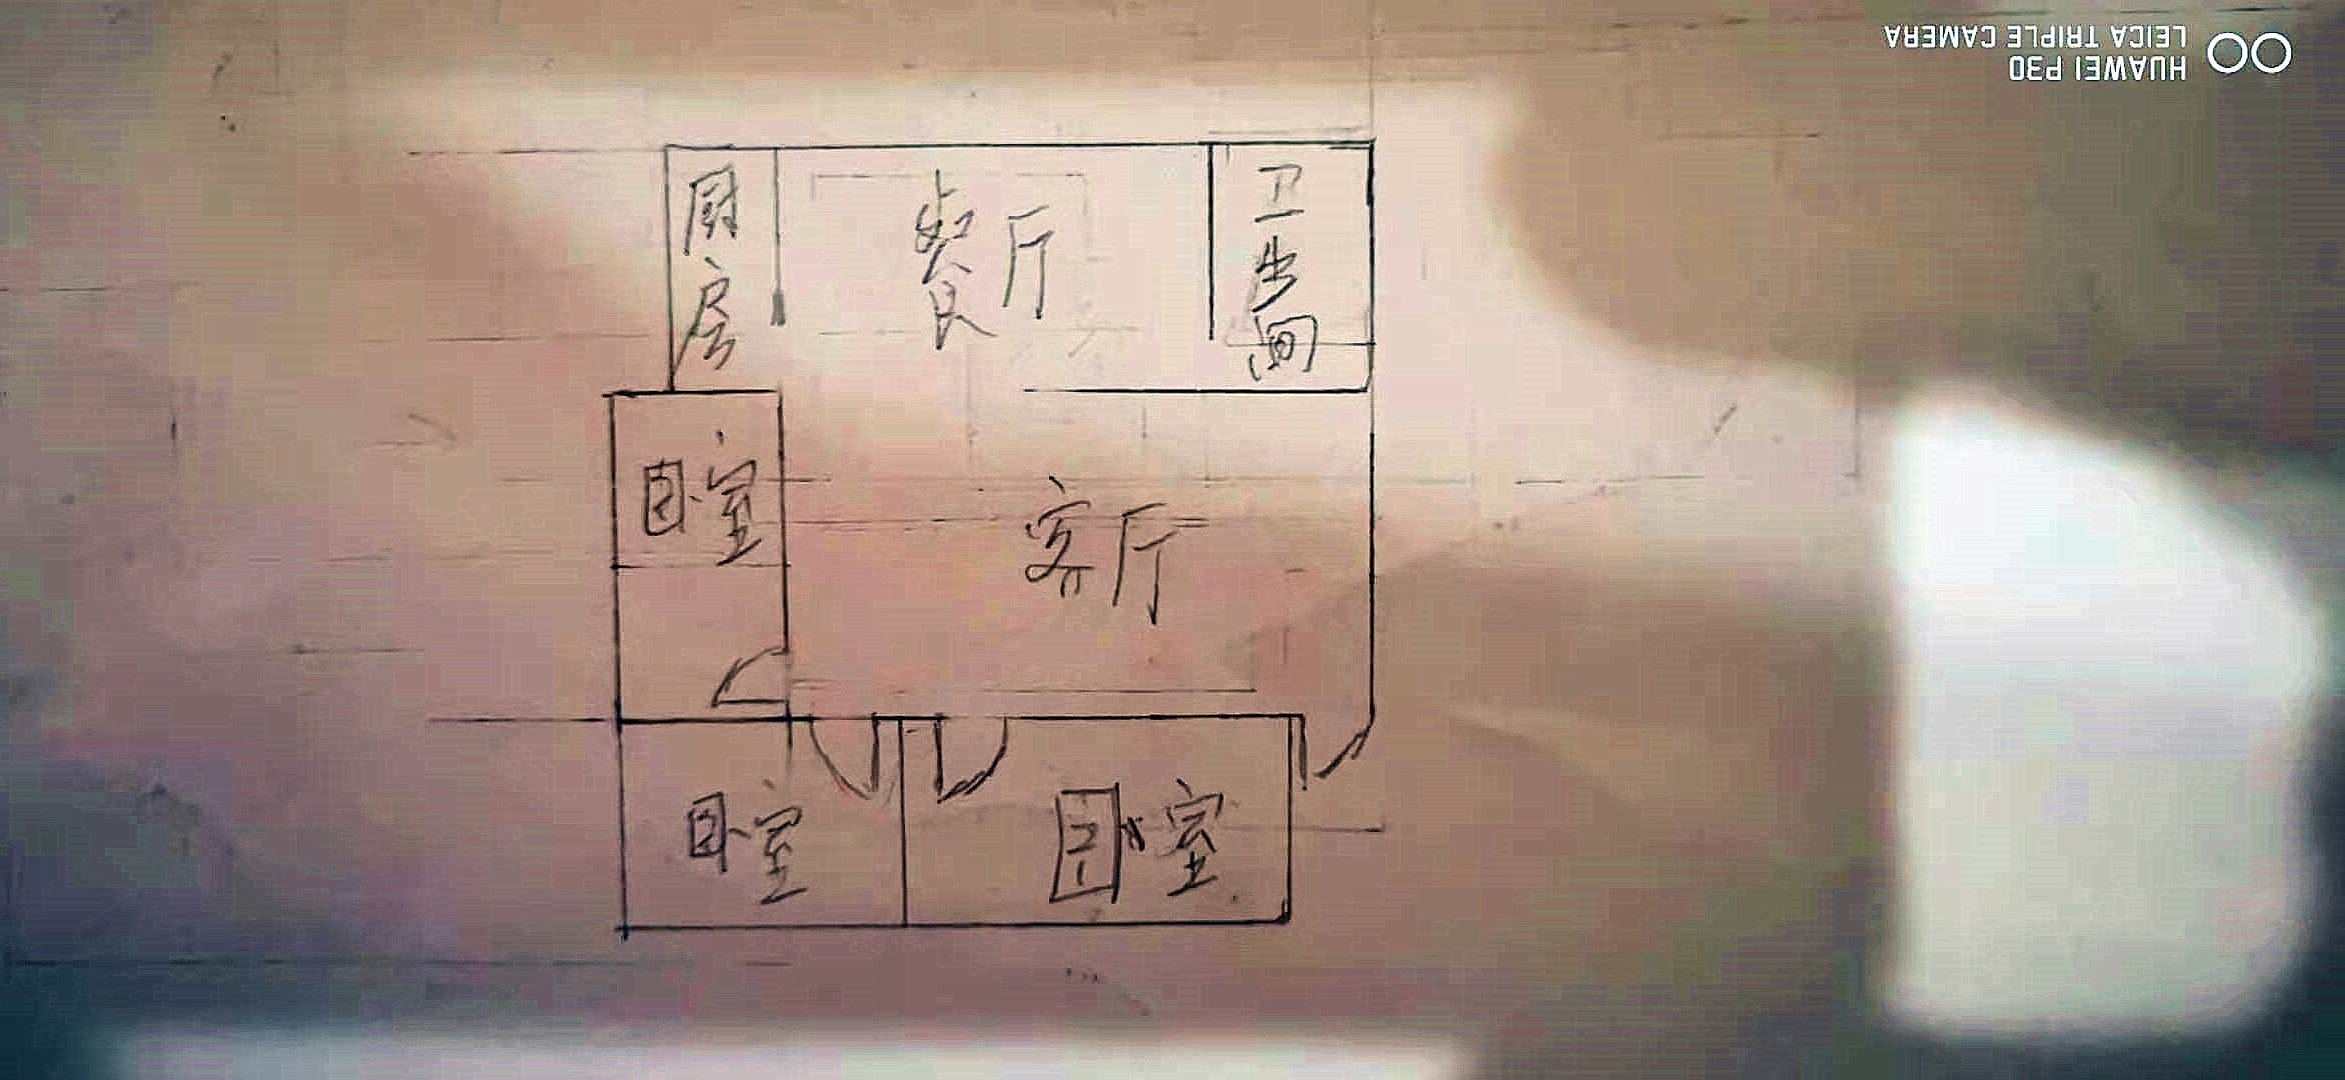 HUAWEI P30
LEICA TRIPLE CAMERA
厨房
餐厅
卫生间
卧室
客厅
卧室
卧室